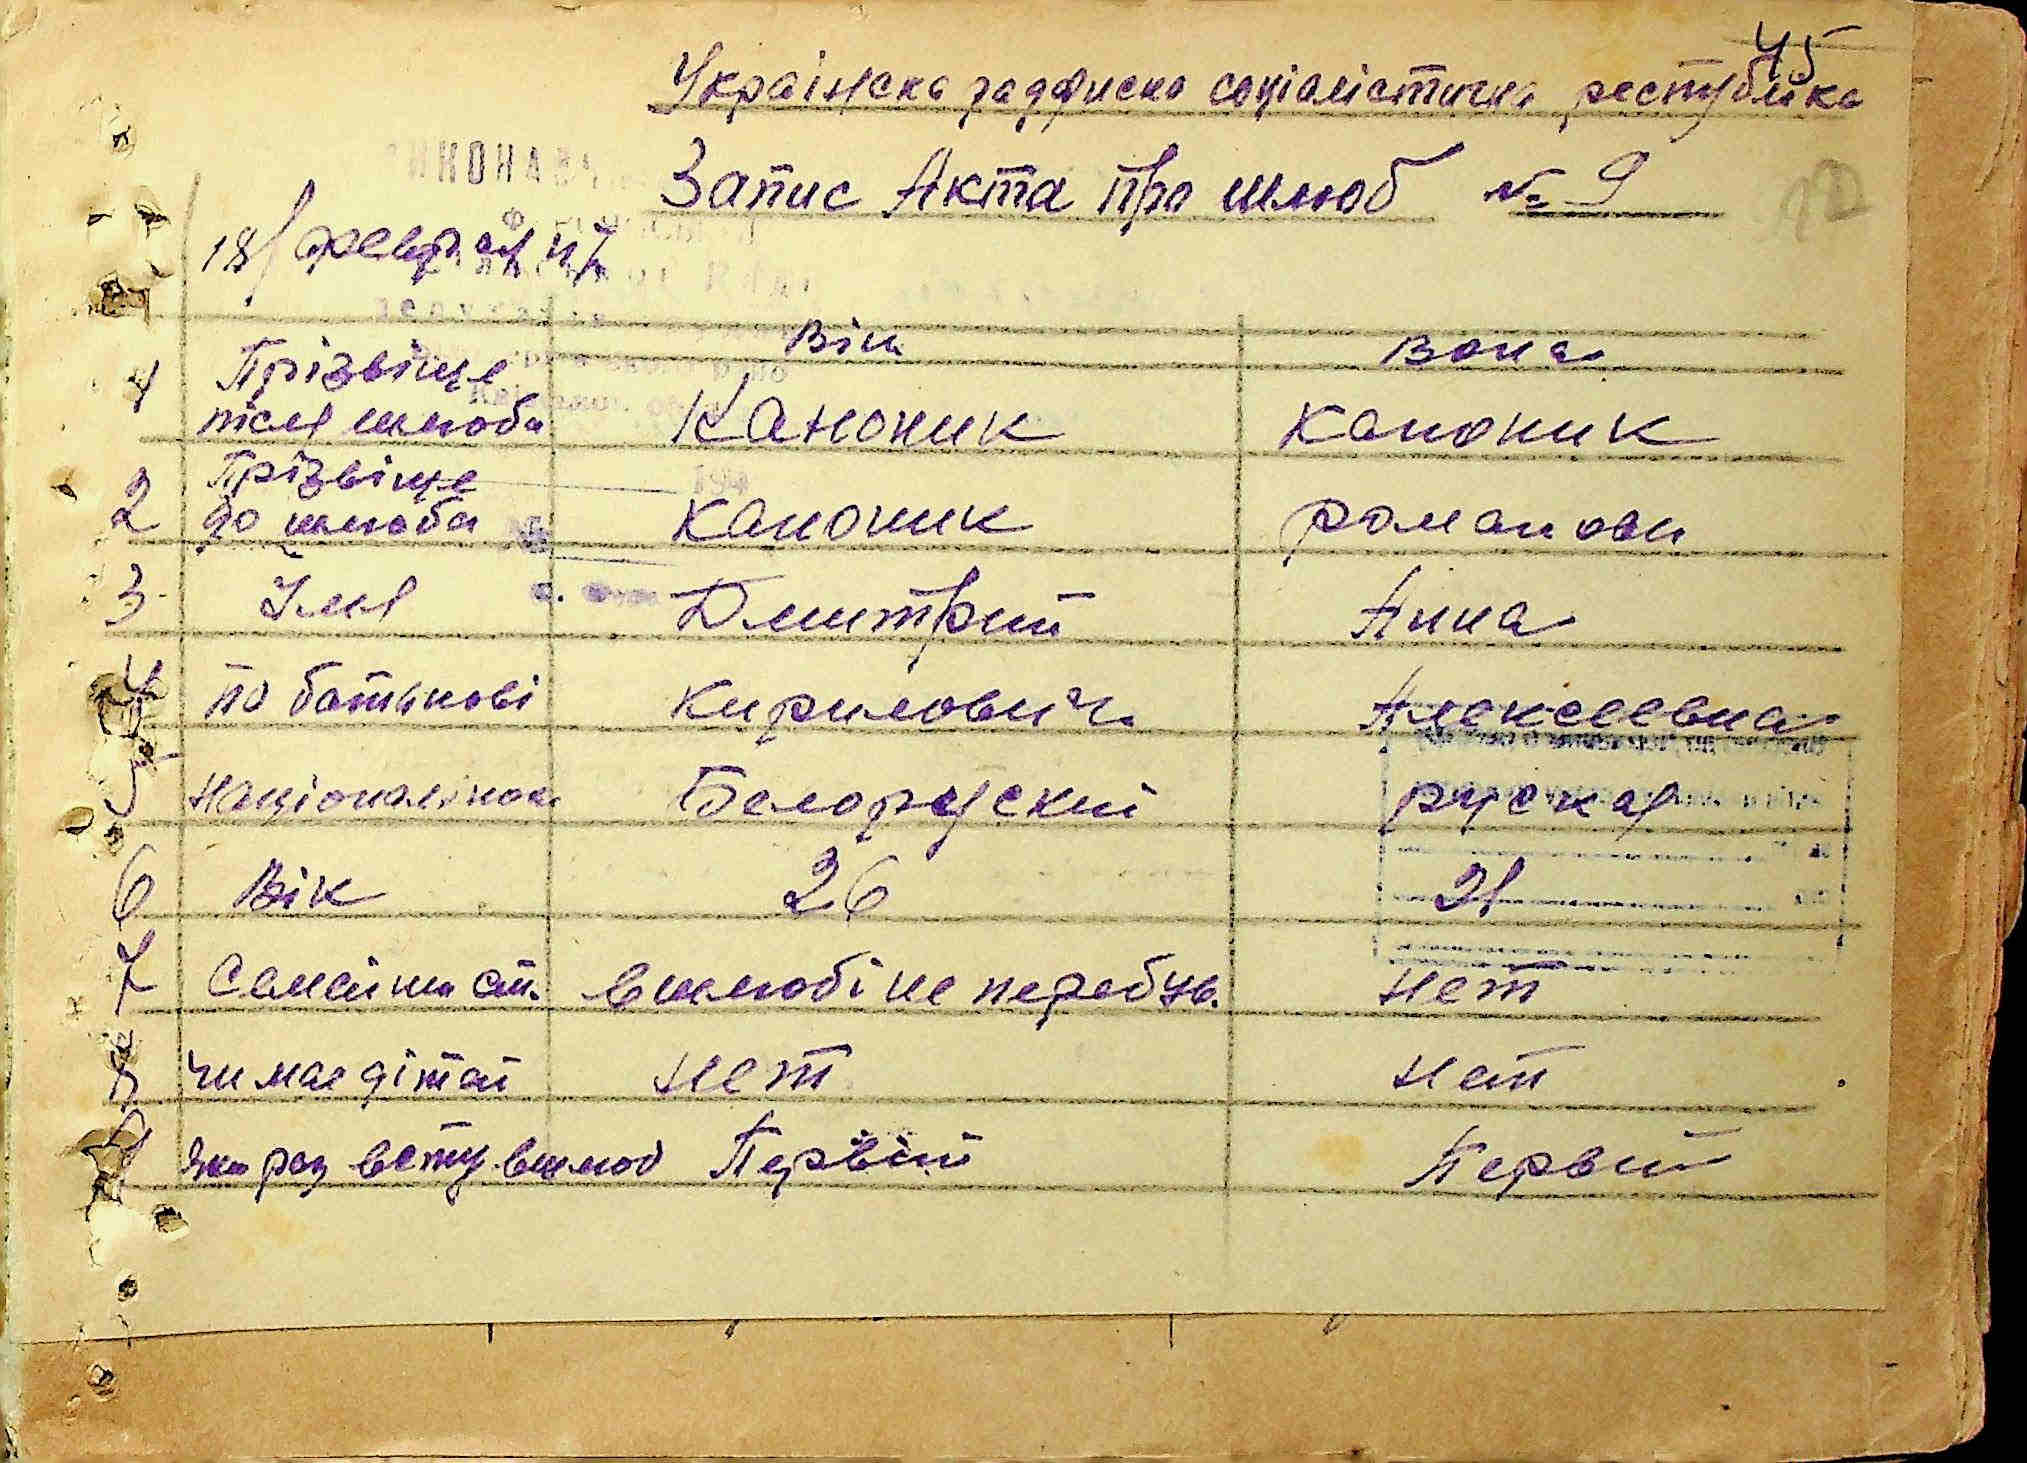 45
Українска раддиска соціалістична республіка
Запис Акта про шлюб № 9
18/ февраля 47
Він Вона
1 Прізвіще після шлюба Каноник Каноник
2 Прізвіще до шлюба Каноник Романова
3 Імя Дмитрий Анна
4 По батькові Кирилович Алексеевна
5 Національнос Белоруский руская
6 Вік 26 21
7 Семейни ст. в шлюбі не перебув. нет
8 Чи мае дітей нет нет
9 Яки раз вступ вшлюб Первий Первий